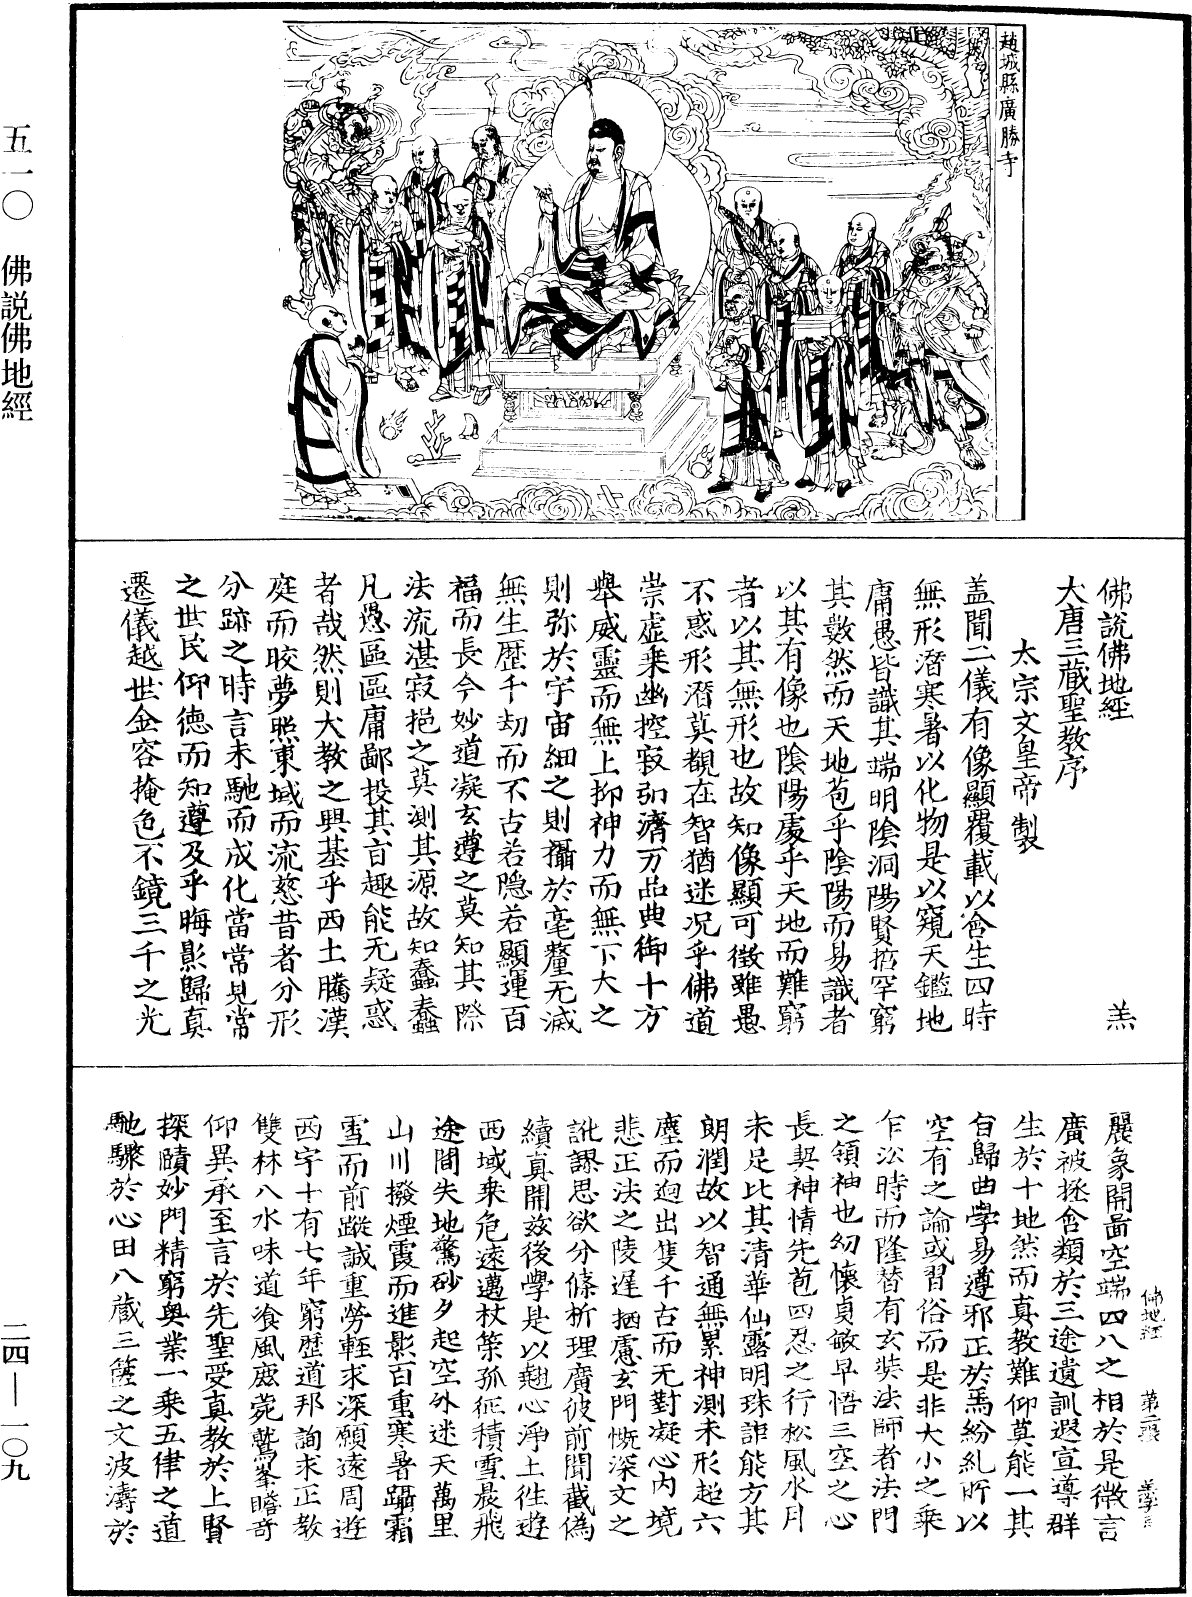 五一〇　佛説佛地經
二四—一〇九
趙城縣廣勝寺
佛說佛地經　羔
大唐三藏聖教序
太宗文皇帝製
盖聞二儀有像顯覆載以含生四時
無形潛寒暑以化物是以窺天鑑地
庸愚皆識其端明陰洞陽賢拮罕窮
其數然而天地苞乎陰陽而易識者
以其有像也陰陽處乎天地而難窮
者以其無形也故知像顯可徵雖愚
不惑形潛莫覩在智猶迷況乎佛道
崇虛乗幽控寂弘濟万品典御十方
舉威靈而無上抑神力而無下大之
則弥於宇宙細之則攝於毫釐无滅
無生歷千劫而不古若隱若顯運百
福而長今妙道凝玄遵之莫知其際
法流湛寂挹之莫測其源故知蠢蠢
凡愚區區庸鄙投其盲趣能无疑惑
者哉然則大教之興基乎西土騰漢
庭而晈夢照東域而流慈昔者分形
分跡之時言未馳而成化當常見常
之世民仰德而知遵及乎晦影歸真
遷儀越世金容掩色不鏡三千之光
麗象開啚空端四八之相於是微言
廣被拯含類於三途遺訓遐宣導群
生於十地然而真教難仰莫能一其
旨歸曲學易遵邪正於焉紛糺所以
空有之論或習俗而是非大小之乗
乍㳂時而隆替有玄奘法師者法門
之領袖也幼懷貞敏早悟三空之心
長契神情先苞四忍之行松風水月
未足比其清華仙露明珠詎能方其
朗潤故以智通無累神測未形超六
塵而迥出隻千古而无對凝心內境
悲正法之陵遲栖慮玄門慨深文之
訛謬思欲分條析理廣彼前聞截偽
續真開兹後學是以翹心淨土徃遊
西域乗危遠邁杖策孤征積雪晨飛
途間失地驚砂夕起空外迷天萬里
山川撥煙霞而進影百重寒暑躡霜
雪而前蹤誠重勞輊求深願遠周遊
西宇十有七年窮歷道邦詢求正教
雙林八水味道飡風鹿菀鷲峯瞻奇
仰異承至言於先聖受真教於上賢
探賾妙門精窮奥業一乗五律之道
馳驟於心田八藏三篋之文波濤於
佛地經　第二張